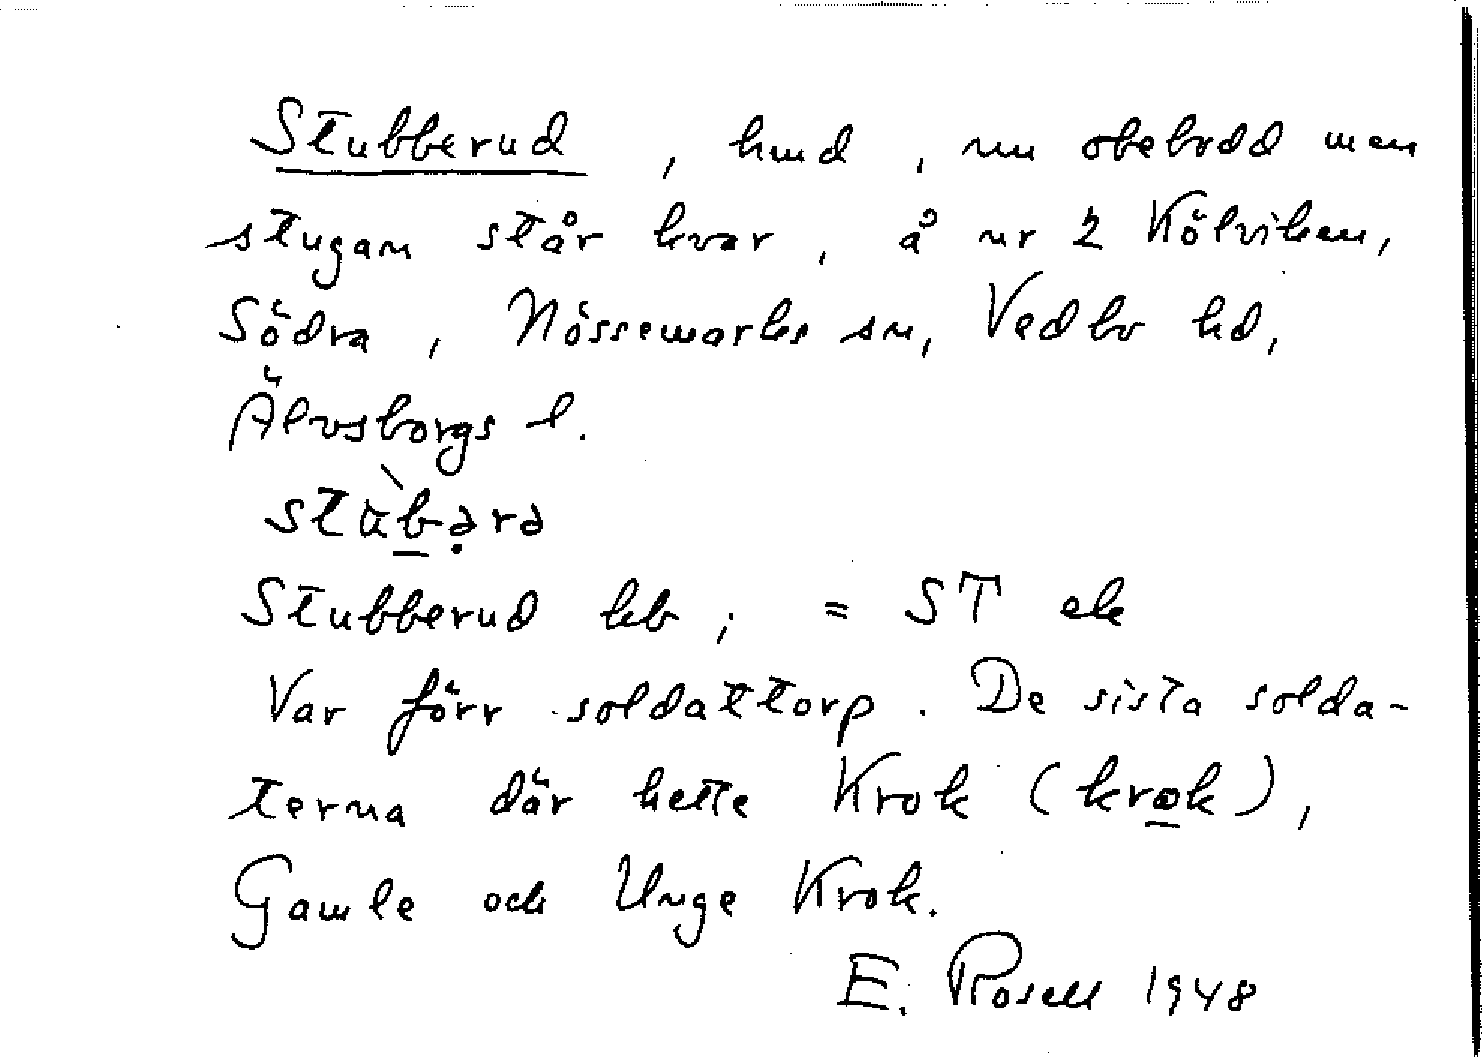 Stubberud, hmd, nu obebodd men
stugan står kvar, å nr 2 Kölviken,
Södra, Nössemarks sn, Vedbo hd,
Älvsborgs l.
Stubberud kb; = ST ek
Var förr soldattorp. De sista solda-
terna där hette Krok (krok),
Gamle och Unge Krok.
E. Rosell 1948